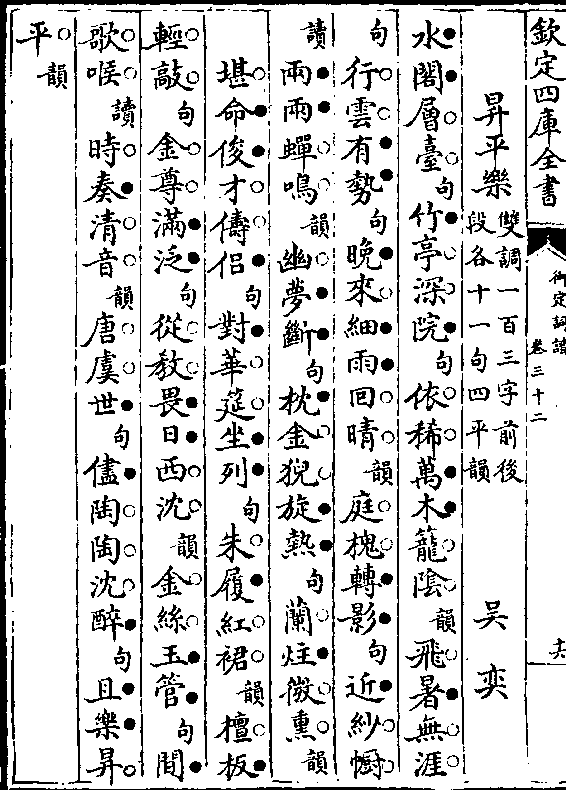 欽定四庫全書 御定詞譜 卷三十二 十六
昇平樂 雙調一百三字前後段各十一句四平韻 吳奕
水閣層臺句竹亭深院句依稀萬木籠陰韻飛暑無涯
句行雲有勢句晚來細雨回晴韻庭槐轉影句近紗幮
讀兩兩蟬鳴韻幽夢斷句枕金猊旋熱句蘭炷微熏韻
堪命俊才儔侶句對華筵坐列句朱履紅裙韻檀板
輕敲句金尊滿泛句從教畏日西沈韻金絲玉管句間
歌喉讀時奏清音韻唐虞世句儘陶陶沈醉句且樂昇
平韻